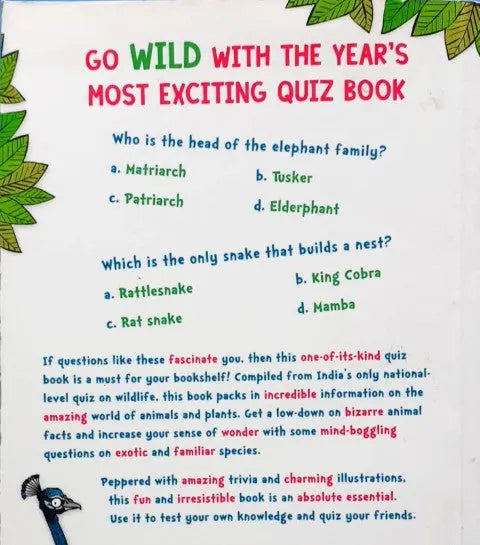 GO WILD WITH THE YEAR'S
MOST EXCITING QUIZ BOOK
Who is the head of the elephant family?
a. Matriarch b. Tusker
c. Patriarch d. Elderphant
Which is the only snake that builds a nest?
a. Rattlesnake b. King Cobra
c. Rat snake d. Mamba
If questions like these fascinate you, then this one-of-its-kind quiz
book is a must for your bookshelf! Compiled from India's only national-
level quiz on wildlife, this book packs in incredible information on the
amazing world of animals and plants. Get a low-down on bizarre animal
facts and increase your sense of wonder with some mind-boggling
questions on exotic and familiar species.
Peppered with amazing trivia and charming illustrations,
this fun and irresistible book is an absolute essential.
Use it to test your own knowledge and quiz your friends.